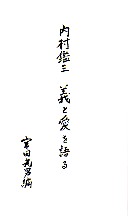 内村鑑三 義と愛を語る
宮田光男編